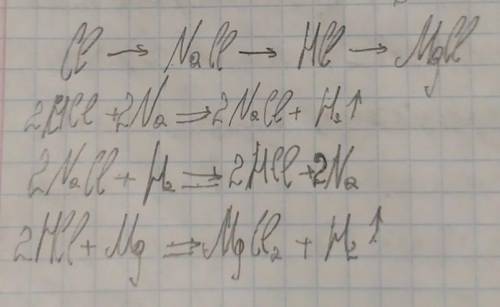 Cl → NaCl → HCl → MgCl
2HCl + 2Na ⇒ 2NaCl + H₂↑
2NaCl + H₂ ⇒ 2HCl + 2Na
2HCl + Mg ⇒ MgCl₂ + H₂↑